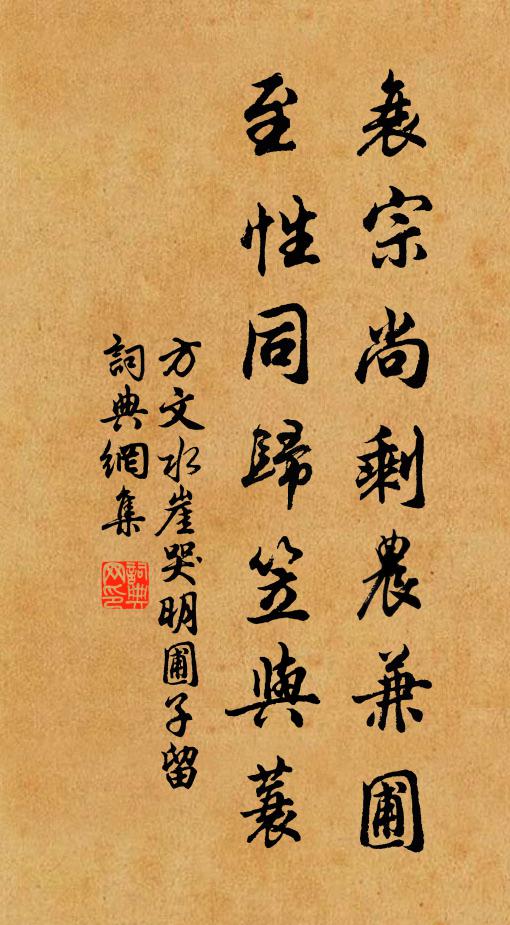 衰宗尚剩農兼圃
至性同歸笠與蓑
方文水崖哭明圃子留
詞典網集
詞典網印